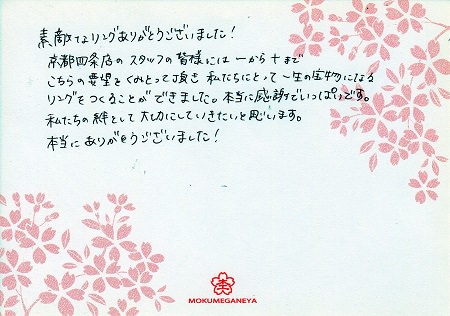 素敵なリングありがとうございました!
京都四条店のスタッフの皆様には一から十まで
こちらの要望をくみとって頂き 私たちにとって一生の宝物になる
リングをつくることができました。本当に感謝でいっぱいです。
私たちの絆として大切にしていきたいと思います。
本当にありがとうございました!
MOKUMEGANEYA